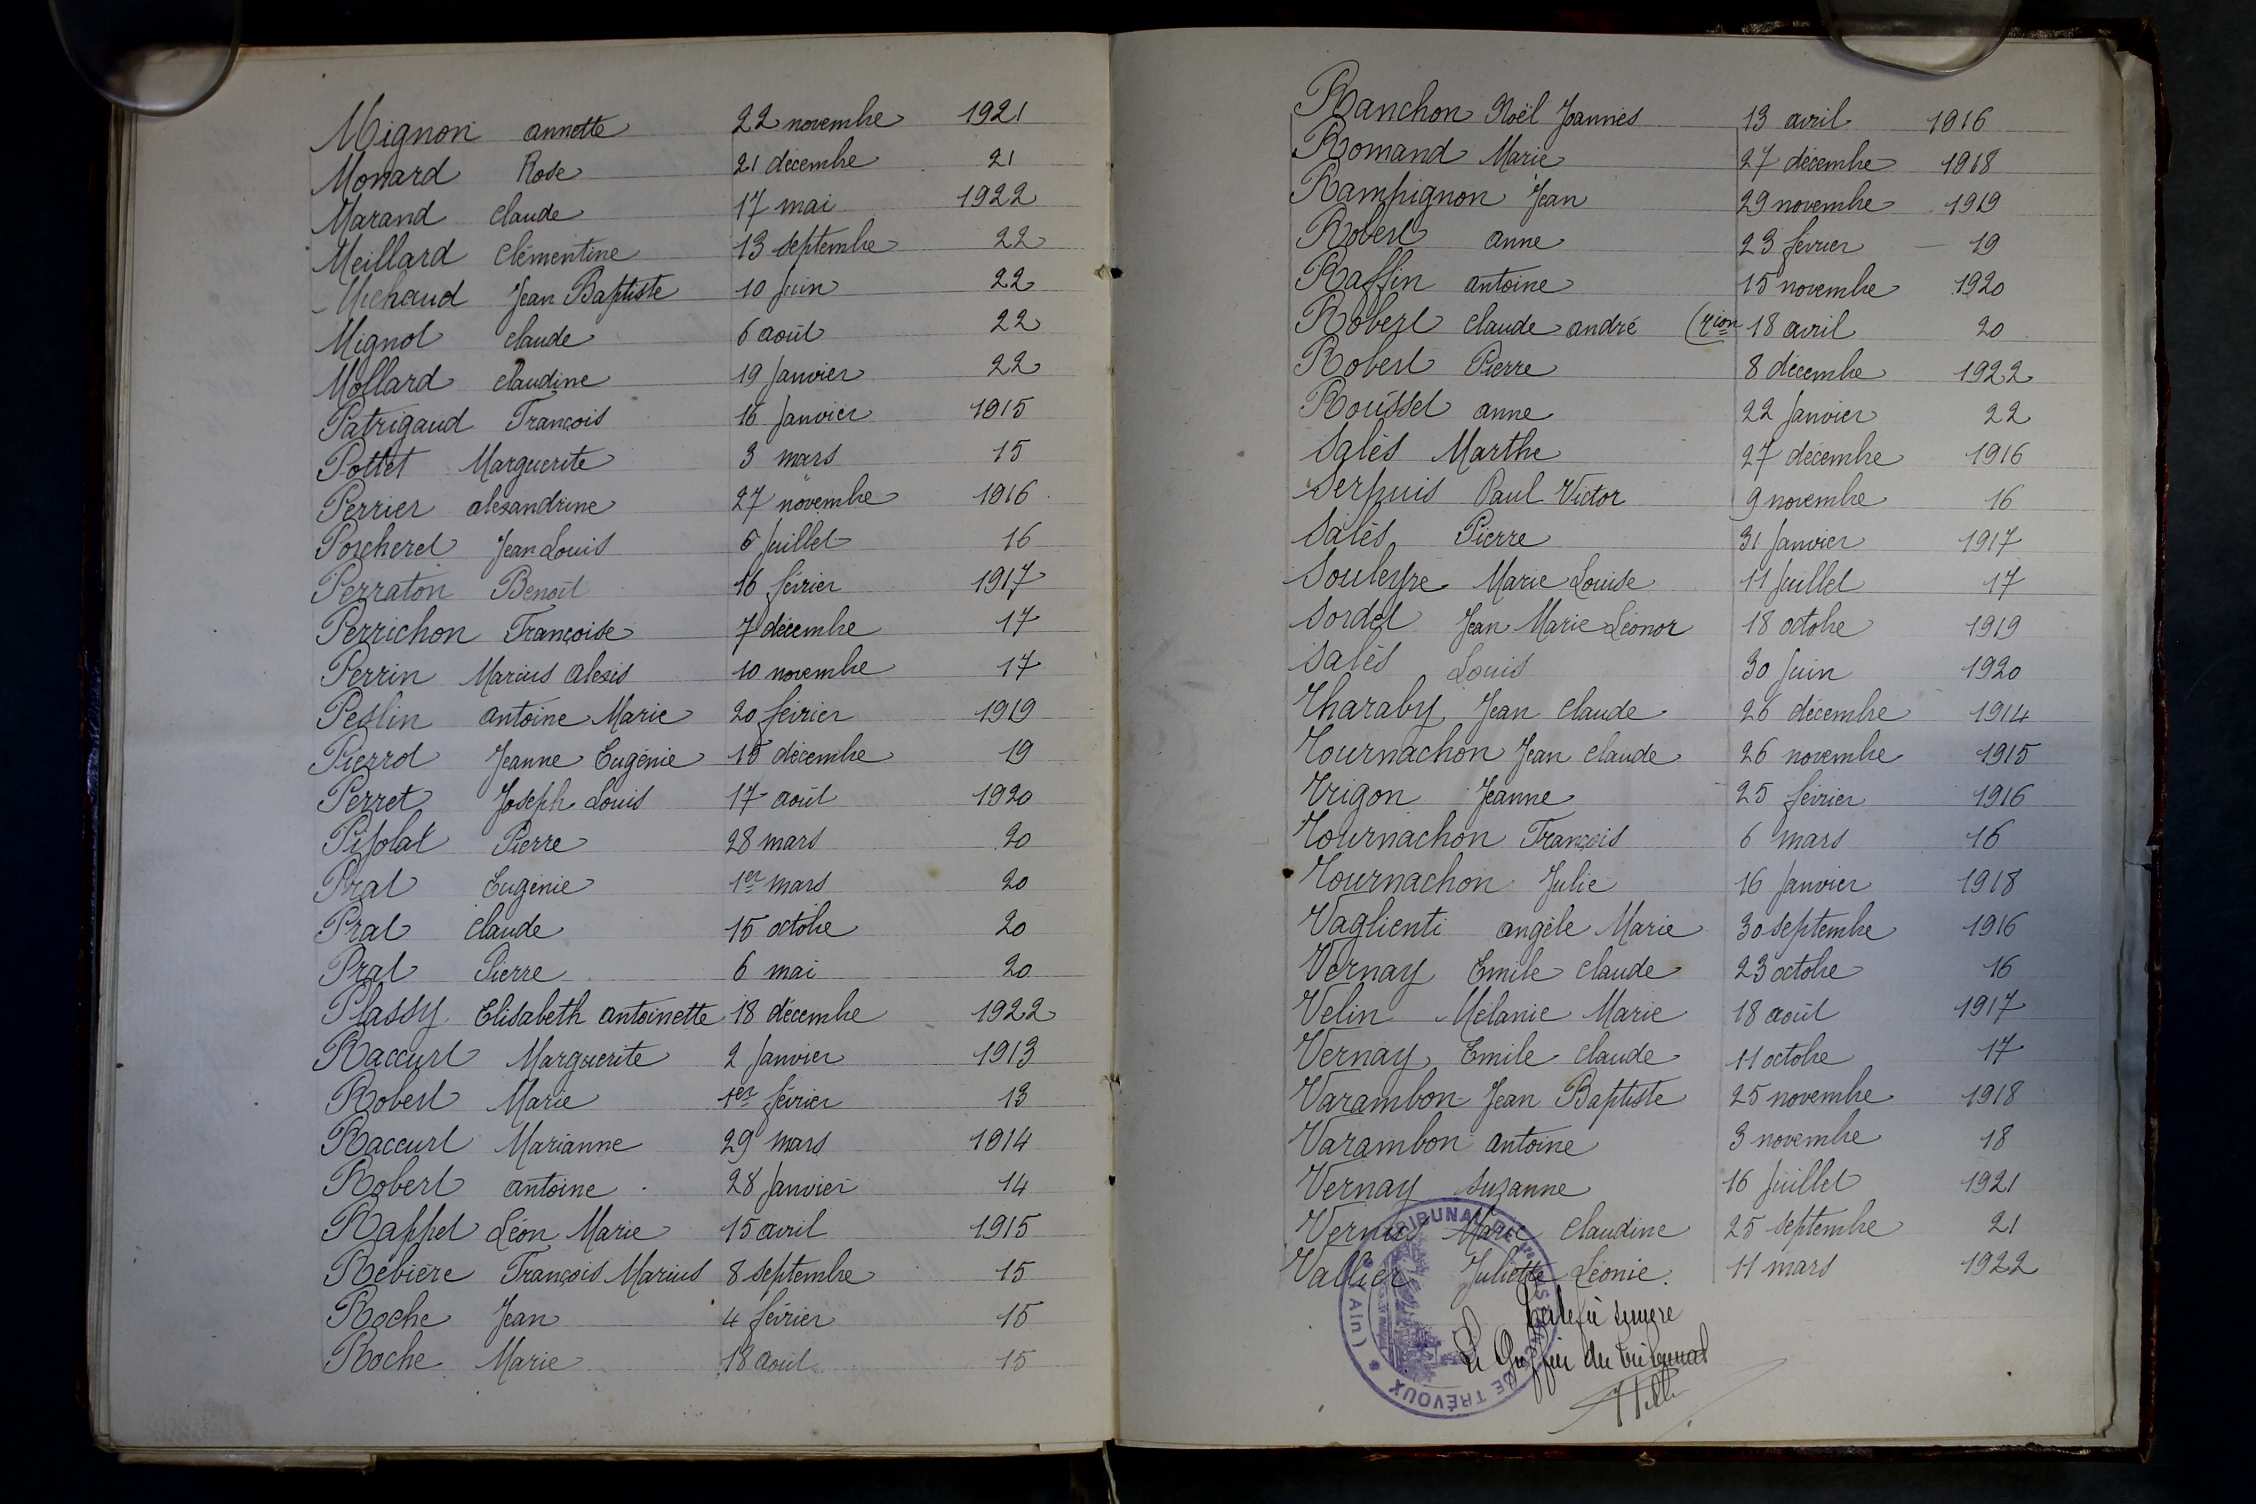 Mignon annette 22 novembre 1921
Monard Rose 21 décembre 21
Marand claude 17 mai 1922
Meillard Clémentine 13 septembre 22
Michaud Jean Baptiste 10 Juin 22
Mignot claude 6 août 22
Mollard claudine 19 Janvier 22
Patrigaud François 16 Janvier 1915
Pottet Marguerite 3 mars 15
Perrier alexandrine 27 novembre 1916
Porcheret Jean Louis 6 Juillet 16
Perraton Benoît 16 février 1917
Perrichon Françoise 7 décembre 17
Perrin Marius Alexis 10 novembre 17
Peslin antoine Marie 20 février 1919
Pierrot Jeanne Eugénie 15 décembre 19
Perret Joseph Louis 17 août 1920
Pisolat Pierre 28 mars 20
Prat Eugénie 1er mars 20
Prat Claude 15 octobre 20
Prat Pierre 6 mai 20
Plassy Elisabeth antoinette 18 décembre 1922
Raccurt Marguerite 2 Janvier 1913
Robert Marie 1er février 13
Raccurt Marianne 29 mars 1914
Robert antoine 28 Janvier 14
Rappet Léon Marie 15 avril 1915
Rébière François Marius 8 septembre 15
Roche Jean 4 février 15
Roche Marie 18 août 15
Ranchon Noël Joannès 13 avril 1916
Romand Marie 27 décembre 1918
Rampignon Jean 29 novembre 1919
Robert anne 23 février 19
Raffin antoine 15 novembre 1920
Robert claude andré (rion 18 avril 20
Robert Pierre 8 décembre 1922
Rousset anne 22 Janvier 22
Salès Marthe 27 décembre 1916
Serpuis Paul Victor 9 novembre 16
Salès Pierre 31 Janvier 1917
Souleyre Marie Louise 11 Juillet 17
Sordet Jean Marie Léonor 18 octobre 1919
Salès Louis 30 Juin 1920
Tharaby Jean Claude 26 décembre 1914
Tournachon Jean claude 26 novembre 1915
Trigon Jeanne 25 février 1916
Tournachon François 6 mars 16
Tournachon Julie 16 Janvier 1918
Vaglienti angèle Marie 30 septembre 1916
Vernay Emile Claude 23 octobre 16
Velin Mélanie Marie 18 août 1917
Vernay Emile Claude 11 octobre 17
Varambon Jean Baptiste 25 novembre 1918
Varambon antoine 3 novembre 18
Vernay Suzanne 16 Juillet 1921
Vernus Marie Claudine 25 septembre 21
Vallier Juliette Léonie. 11 mars 1922
Le Greffier du tribunal
TRIBUNAL DE 1re INSTANCE DE TRÉVOUX (Ain)